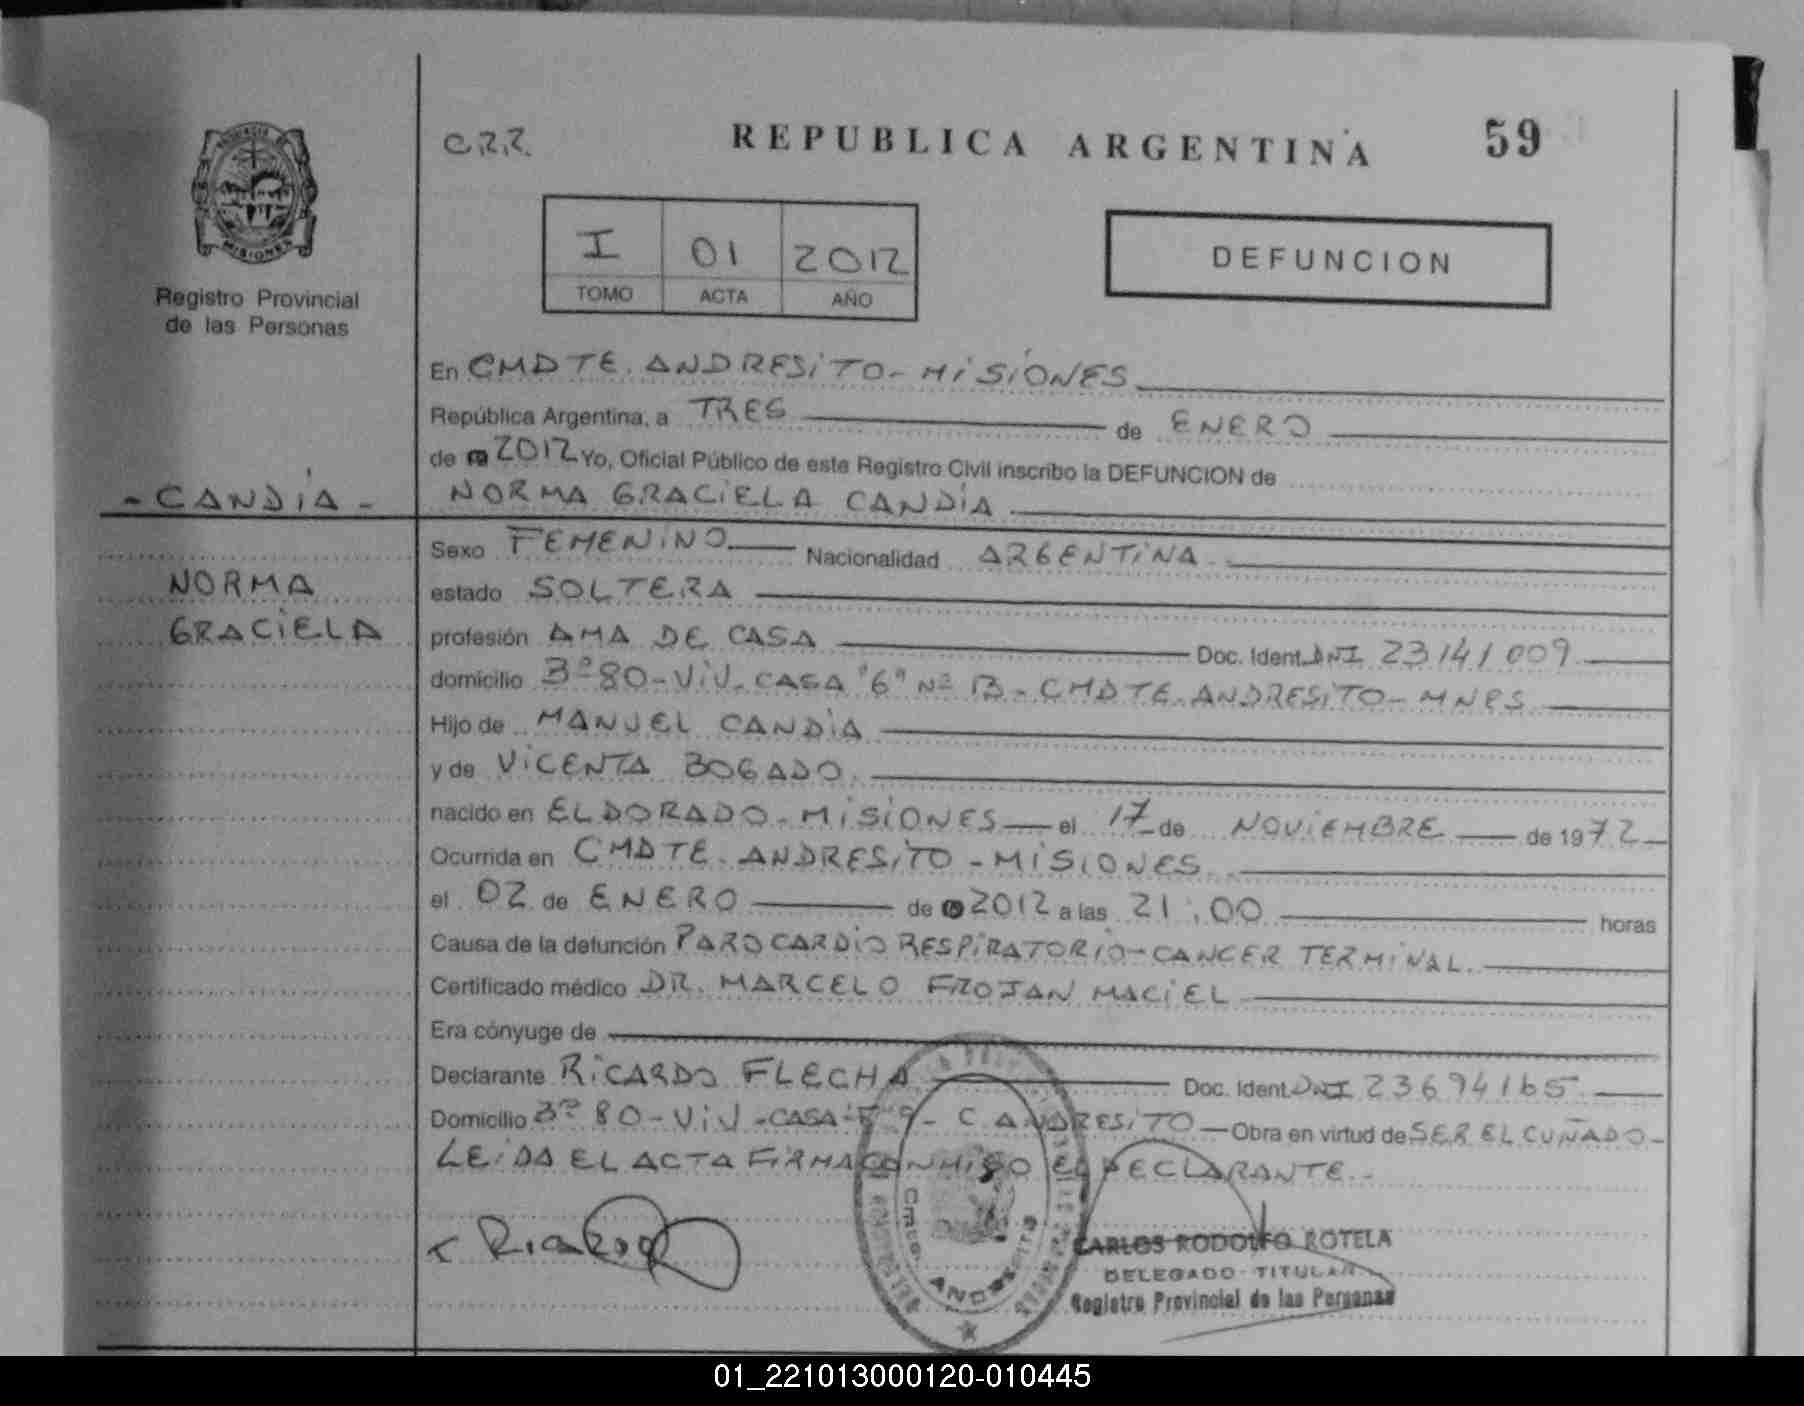 PROVINCIA DE
MISIONES
Registro Provincial
de las Personas
C.R.R.
REPUBLICA ARGENTINA
59
I 01 2012
TOMO ACTA AÑO
DEFUNCION
En CMDTE. ANDRESiTO - MiSiONES
República Argentina, a TRES de ENERO
de 2012 Yo, Oficial Público de este Registro Civil inscribo la DEFUNCION de
- CANDiA -
NORMA GRACiELA CANDiA
NORMA
GRACiELA
Sexo FEMENiNO Nacionalidad ARGENTiNA
estado SOLTERA
profesión AMA DE CASA Doc. Ident. DNI 23141009
domicilio 3º 80 - ViV. CASA "6" Nº 13 - CMDTE. ANDRESiTO - MNES
Hijo de MANUEL CANDiA
y de ViCENTA BOGADO
nacido en ELDORADO - MiSiONES el 17 de NOViEMBRE de 1972
Ocurrida en CMDTE. ANDRESiTO - MiSiONES
el 02 de ENERO de 2012 a las 21:00 horas
Causa de la defunción PARO CARDiO RESPiRATORiO - CANCER TERMiNAL.
Certificado médico DR. MARCELO FROJAN MACiEL
Era cónyuge de
Declarante RiCARDO FLECHA Doc. Ident. DNI 23694165
Domicilio 3º 80 - ViV - CASA 9 - C. ANDRESiTO Obra en virtud de SER EL CUÑADO -
LEiDA EL ACTA FiRMA CONMiGO EL DECLARANTE.
Cmte. ANDRESITO
CARLOS RODOLFO ROTELA
DELEGADO TITULAR
Registro Provincial de las Personas
01_221013000120-010445